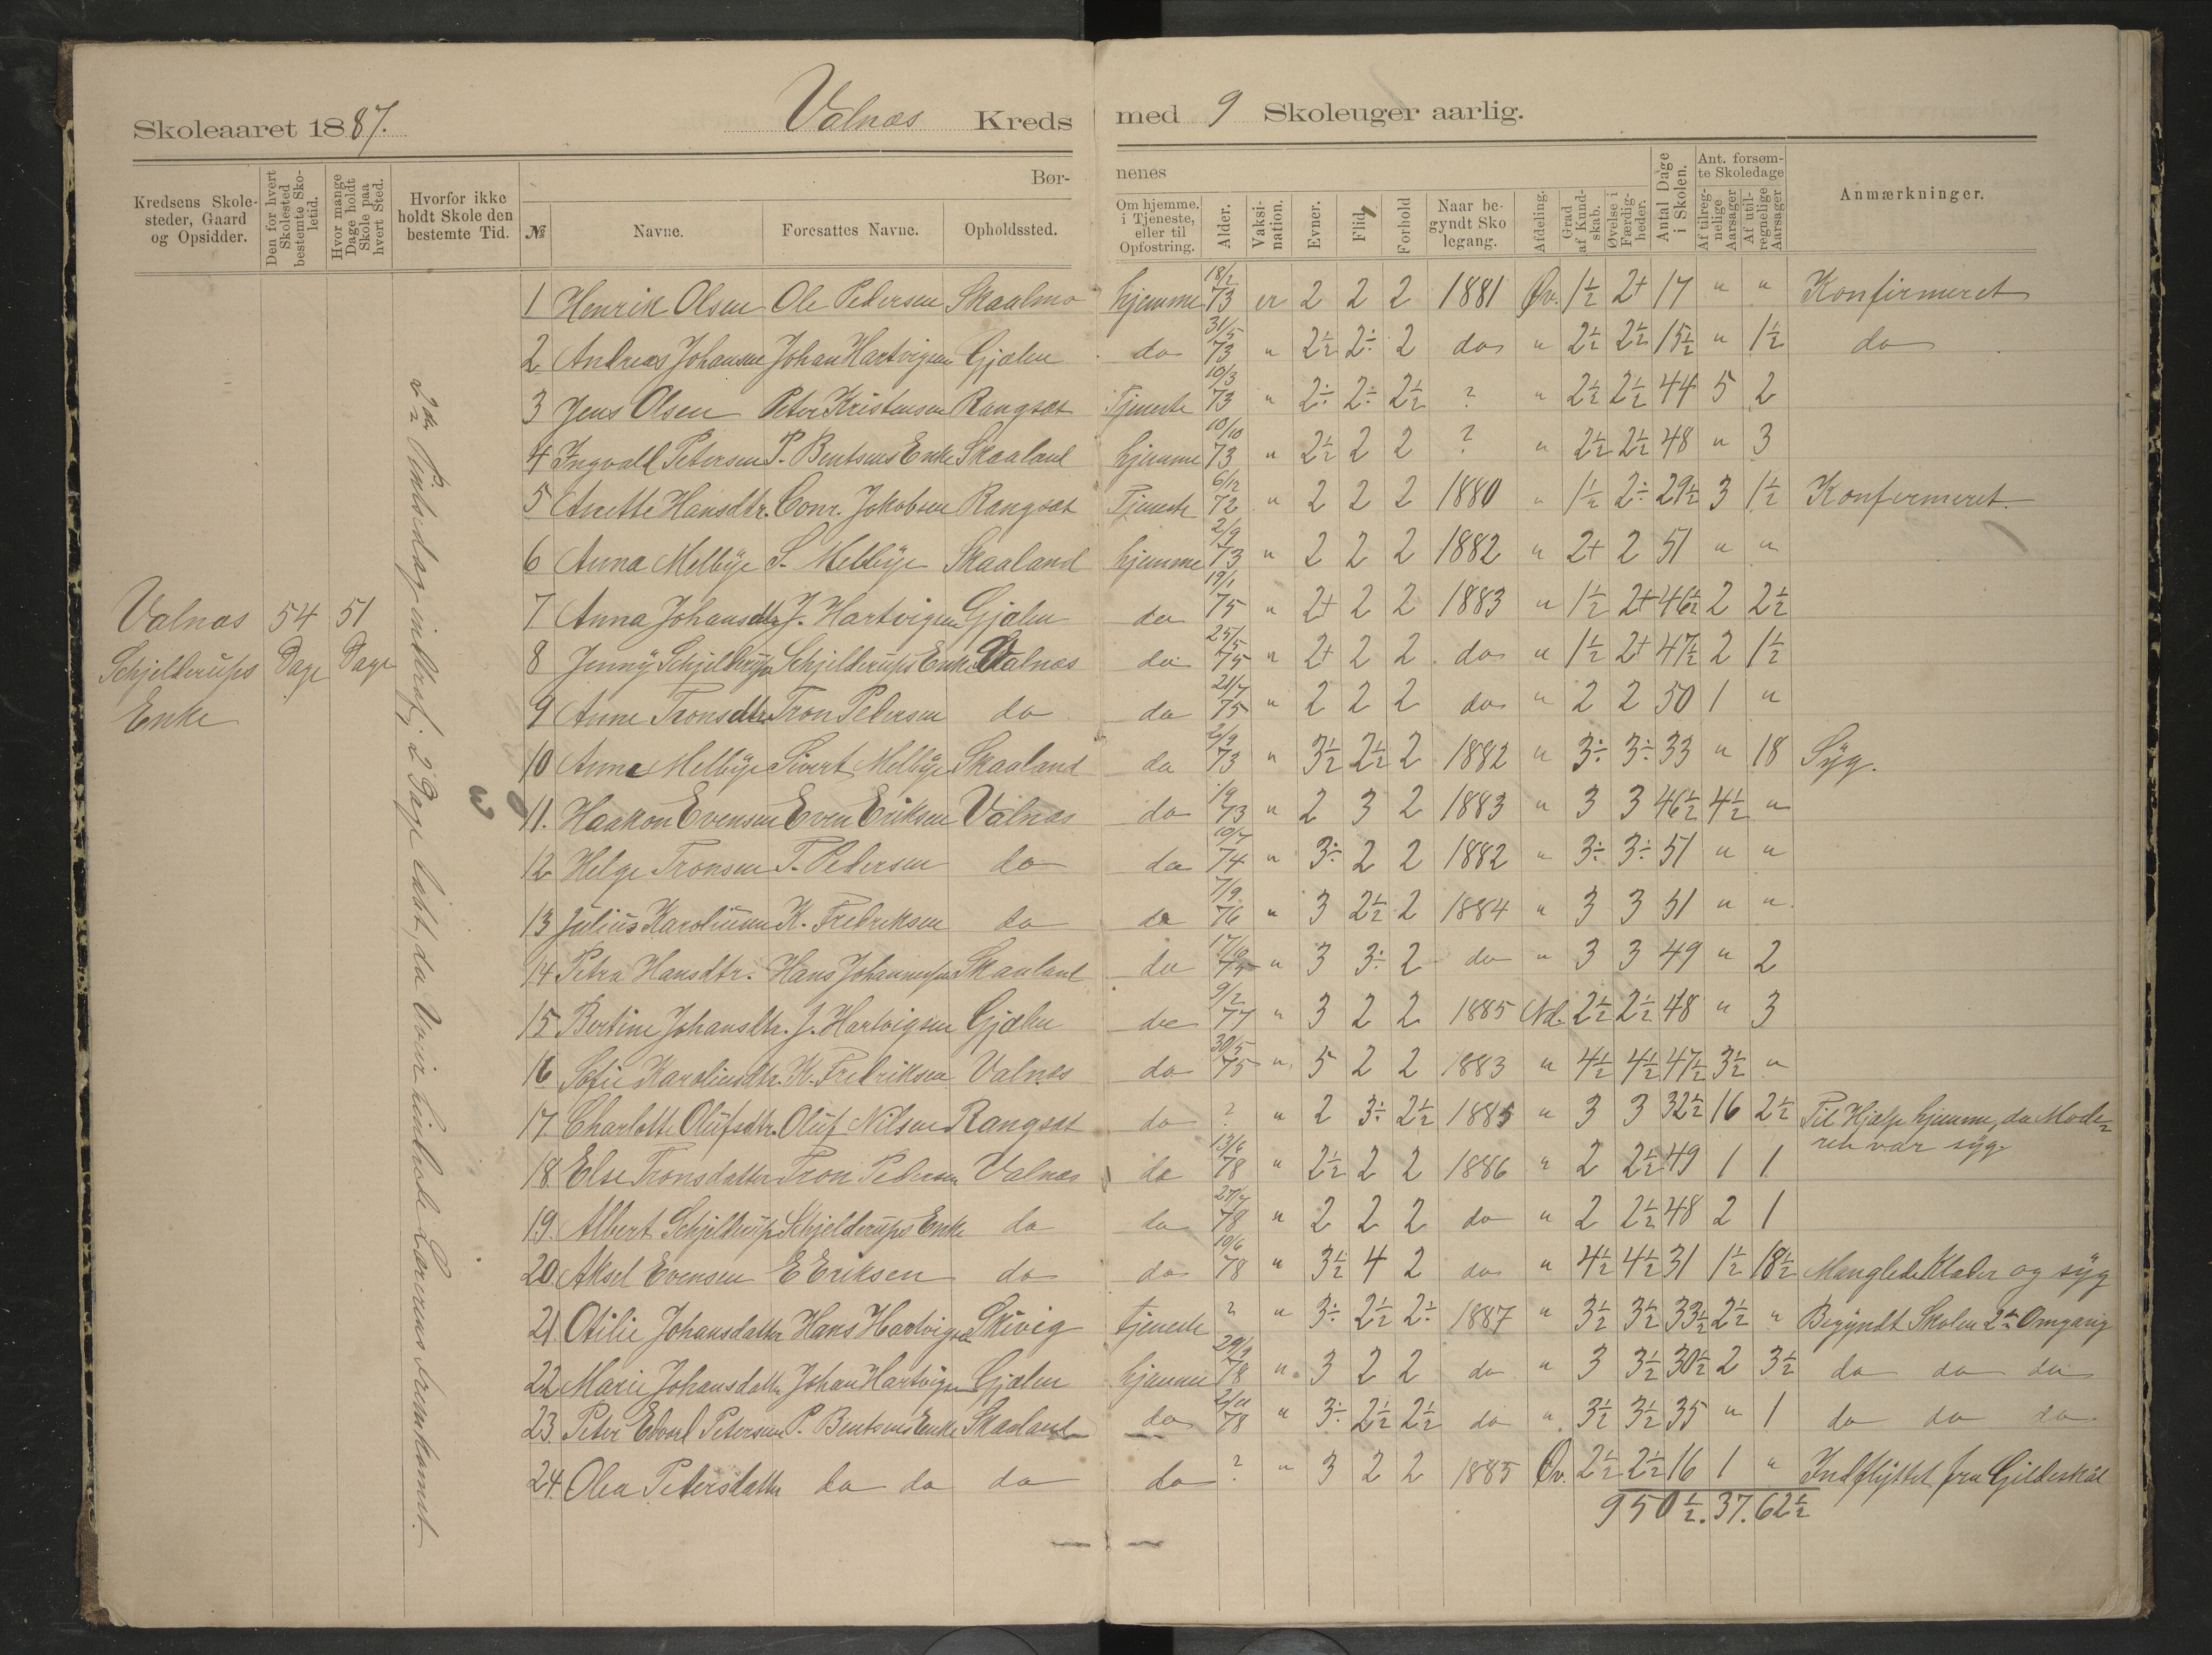 Skoleaaret 1887. Valnæs Kreds med 9 Skoleuger aarlig.
Kredsens Skolesteder, Gaard og Opsidder. | Den for hvert Skolested bestemte Skoletid. | Hvor mange Dage holdt Skole paa hvert Sted. | Hvorfor ikke holdt Skole den bestemte Tid. | Børnenes
№ | Navne. | Foresattes Navne. | Opholdssted. | Om hjemme, i Tjeneste, eller til Opfostring. | Alder. | Vaksination. | Evner. | Flid. | Forhold | Naar begyndt Skolegang. | Afdeling. | Grad af Kundskab. | Øvelse i Færdigheder. | Antal Dage i Skolen. | Ant. forsømte Skoledage | Af tilregnelige Aarsager | Af utilregnelige Aarsager | Anmærkninger.
Valnæs 54 51
Schjelderups Dage Dage
Enke
2den Pintsedag indtraf; 2 Dage tabt, da Veir hindrede Lærerens Fremkomst.
1 Henrik Olsen Ole Pedersen Skaalmo hjemme 18/2 73 er 2 2 2 1881 Øv. 1½ 2+ 17 " " Konfirmeret
2 Andreas Johansen Johan Hartvigsen Gjælen do 31/5 73 " 2½ 2÷ 2 do " 2½ 2½ 15½ " 1½ do
3 Jens Olsen Peter Kristensen Rangsæt Tjeneste 10/3 73 " 2÷ 2÷ 2½ ? " 2½ 2½ 44 5 2
4 Ingvald Petersen P. Bentsens Enke Skaaland hjemme 10/10 73 " 2½ 2 2 ? " 2½ 2½ 48 " 3
5 Anette Hansdtr. Conr. Jakobsen Rangsæt Tjeneste 6/12 72 " 2 2 2 1880 " 1½ 2÷ 29½ 3 1½ Konfermeret.
6 Anna Melbye S. Melbye Skaaland hjemme 2/9 73 " 2 2 2 1882 " 2+ 2 51 " "
7 Anna Johansdtr J. Hartvigsen Gjælen do 19/1 75 " 2+ 2 2 1883 " 1½ 2+ 46½ 2 2½
8 Jenny Schjelderup Schjelderups Enke Valnæs do 25/5 75 " 2+ 2 2 do " 1½ 2+ 47½ 2 1½
9 Anne Tronsdtr Tron Pedersen do do 21/7 75 " 2 2 2 do " 2 2 50 1 "
10 Anne Melbye Sivert Melbye Skaaland do 2/9 73 " 3½ 2½ 2 1882 " 3÷ 3÷ 33 " 18 Syg.
11. Haakon Evensen Even Eriksen Valnæs do 73 " 2 3 2 1883 " 3 3 46½ 4½ "
12 Helge Tronsen T. Pedersen do do 10/7 74 " 3÷ 2 2 1882 " 3÷ 3÷ 51 " "
13 Julius Karoliusen K. Fredriksen do do 7/9 76 " 3 2½ 2 1884 " 3 3 51 " "
14 Petra Hansdtr. Hans Johannessen Skaaland do 17/9 75 " 3 3÷ 2 do " 3 3 49 " 2
15 Bertine Johansdtr. J. Hartvigsen Gjælen do 9/2 77 " 3 2 2 1885 Nd. 2½ 2½ 48 " 3
16 Sofie Karoliusdtr. K. Fredriksen Valnæs do 30/5 75 " 5 2 2 1883 " 4½ 4½ 47½ 3½ "
17 Charlotte Olufsdtr. Oluf Nilsen Rangsæt do ? " 2 3÷ 2½ 1885 " 3 3 32½ 16 2½ Til Hjælp hjemme, da Mode-
ren var syg
18. Else Tronsdatter Tron Pedersen Valnæs do 13/6 78 " 2½ 2 2 1886 " 2 2½ 49 1 1
19. Albert Schjelderup Schjelderups Enke do do 27/7 78 " 2 2 2 do " 2 2½ 48 2 1
20. Aksel Evensen E Eriksen do do 10/6 78 " 3½ 4 2 do " 4½ 4½ 31 1½ 18½ Manglede Klæder og syg
21 Otilie Johansdatter Hans Hartvigsen Skivig tjeneste ? " 3÷ 2½ 2÷ 1887 " 3½ 3½ 33½ 2½ " Begyndt Skolen 2den Omgang
22 Marie Johansdatter Johan Hartvigsen Gjælen hjemme 29/9 78 " 3 2 2 do " 3 3½ 30½ 2 3½ do do do
23. Peter Edvard Petersen P. Bentsens Enke Skaaland do 2/11 78 " 3÷ 2½ 2½ do " 3½ 3½ 35 " 1 do do do
24. Olea Petersdatter do do do do ? " 3 2 2 1885 Øv. 2½ 2½ 16 1 " Indflyttet fra Gildeskål
950½. 37. 62½